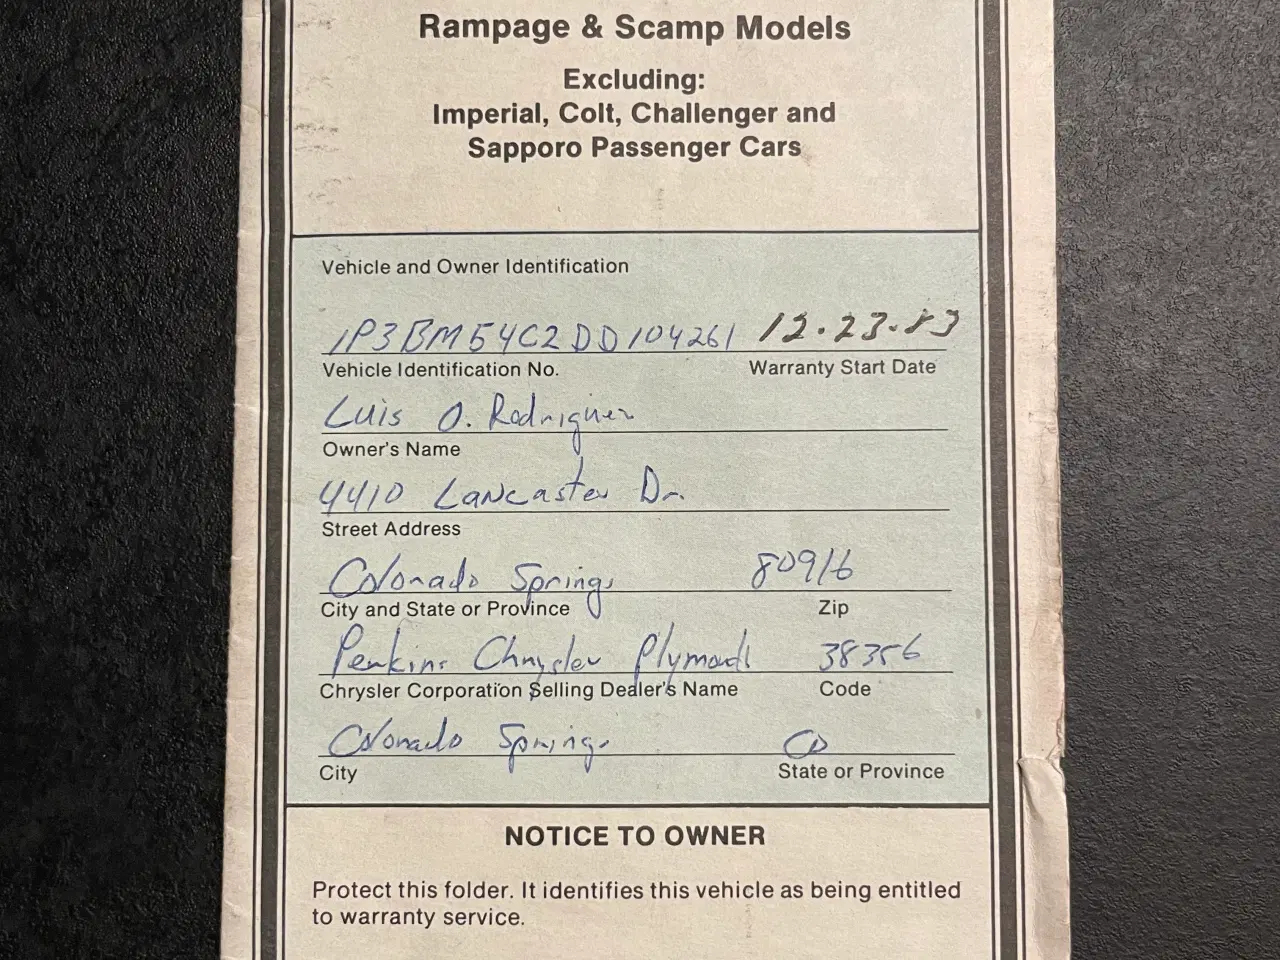 Rampage & Scamp Models
Excluding:
Imperial, Colt, Challenger and
Sapporo Passenger Cars
Vehicle and Owner Identification
1P3BM54C2DD104261 12.23.83
Vehicle Identification No. Warranty Start Date
Luis O. Rodriguez
Owner's Name
4410 Lancaster Dr.
Street Address
Colorado Springs 80916
City and State or Province Zip
Perkins Chrysler Plymouth 38356
Chrysler Corporation Selling Dealer's Name Code
Colorado Springs CO
City State or Province
NOTICE TO OWNER
Protect this folder. It identifies this vehicle as being entitled
to warranty service.